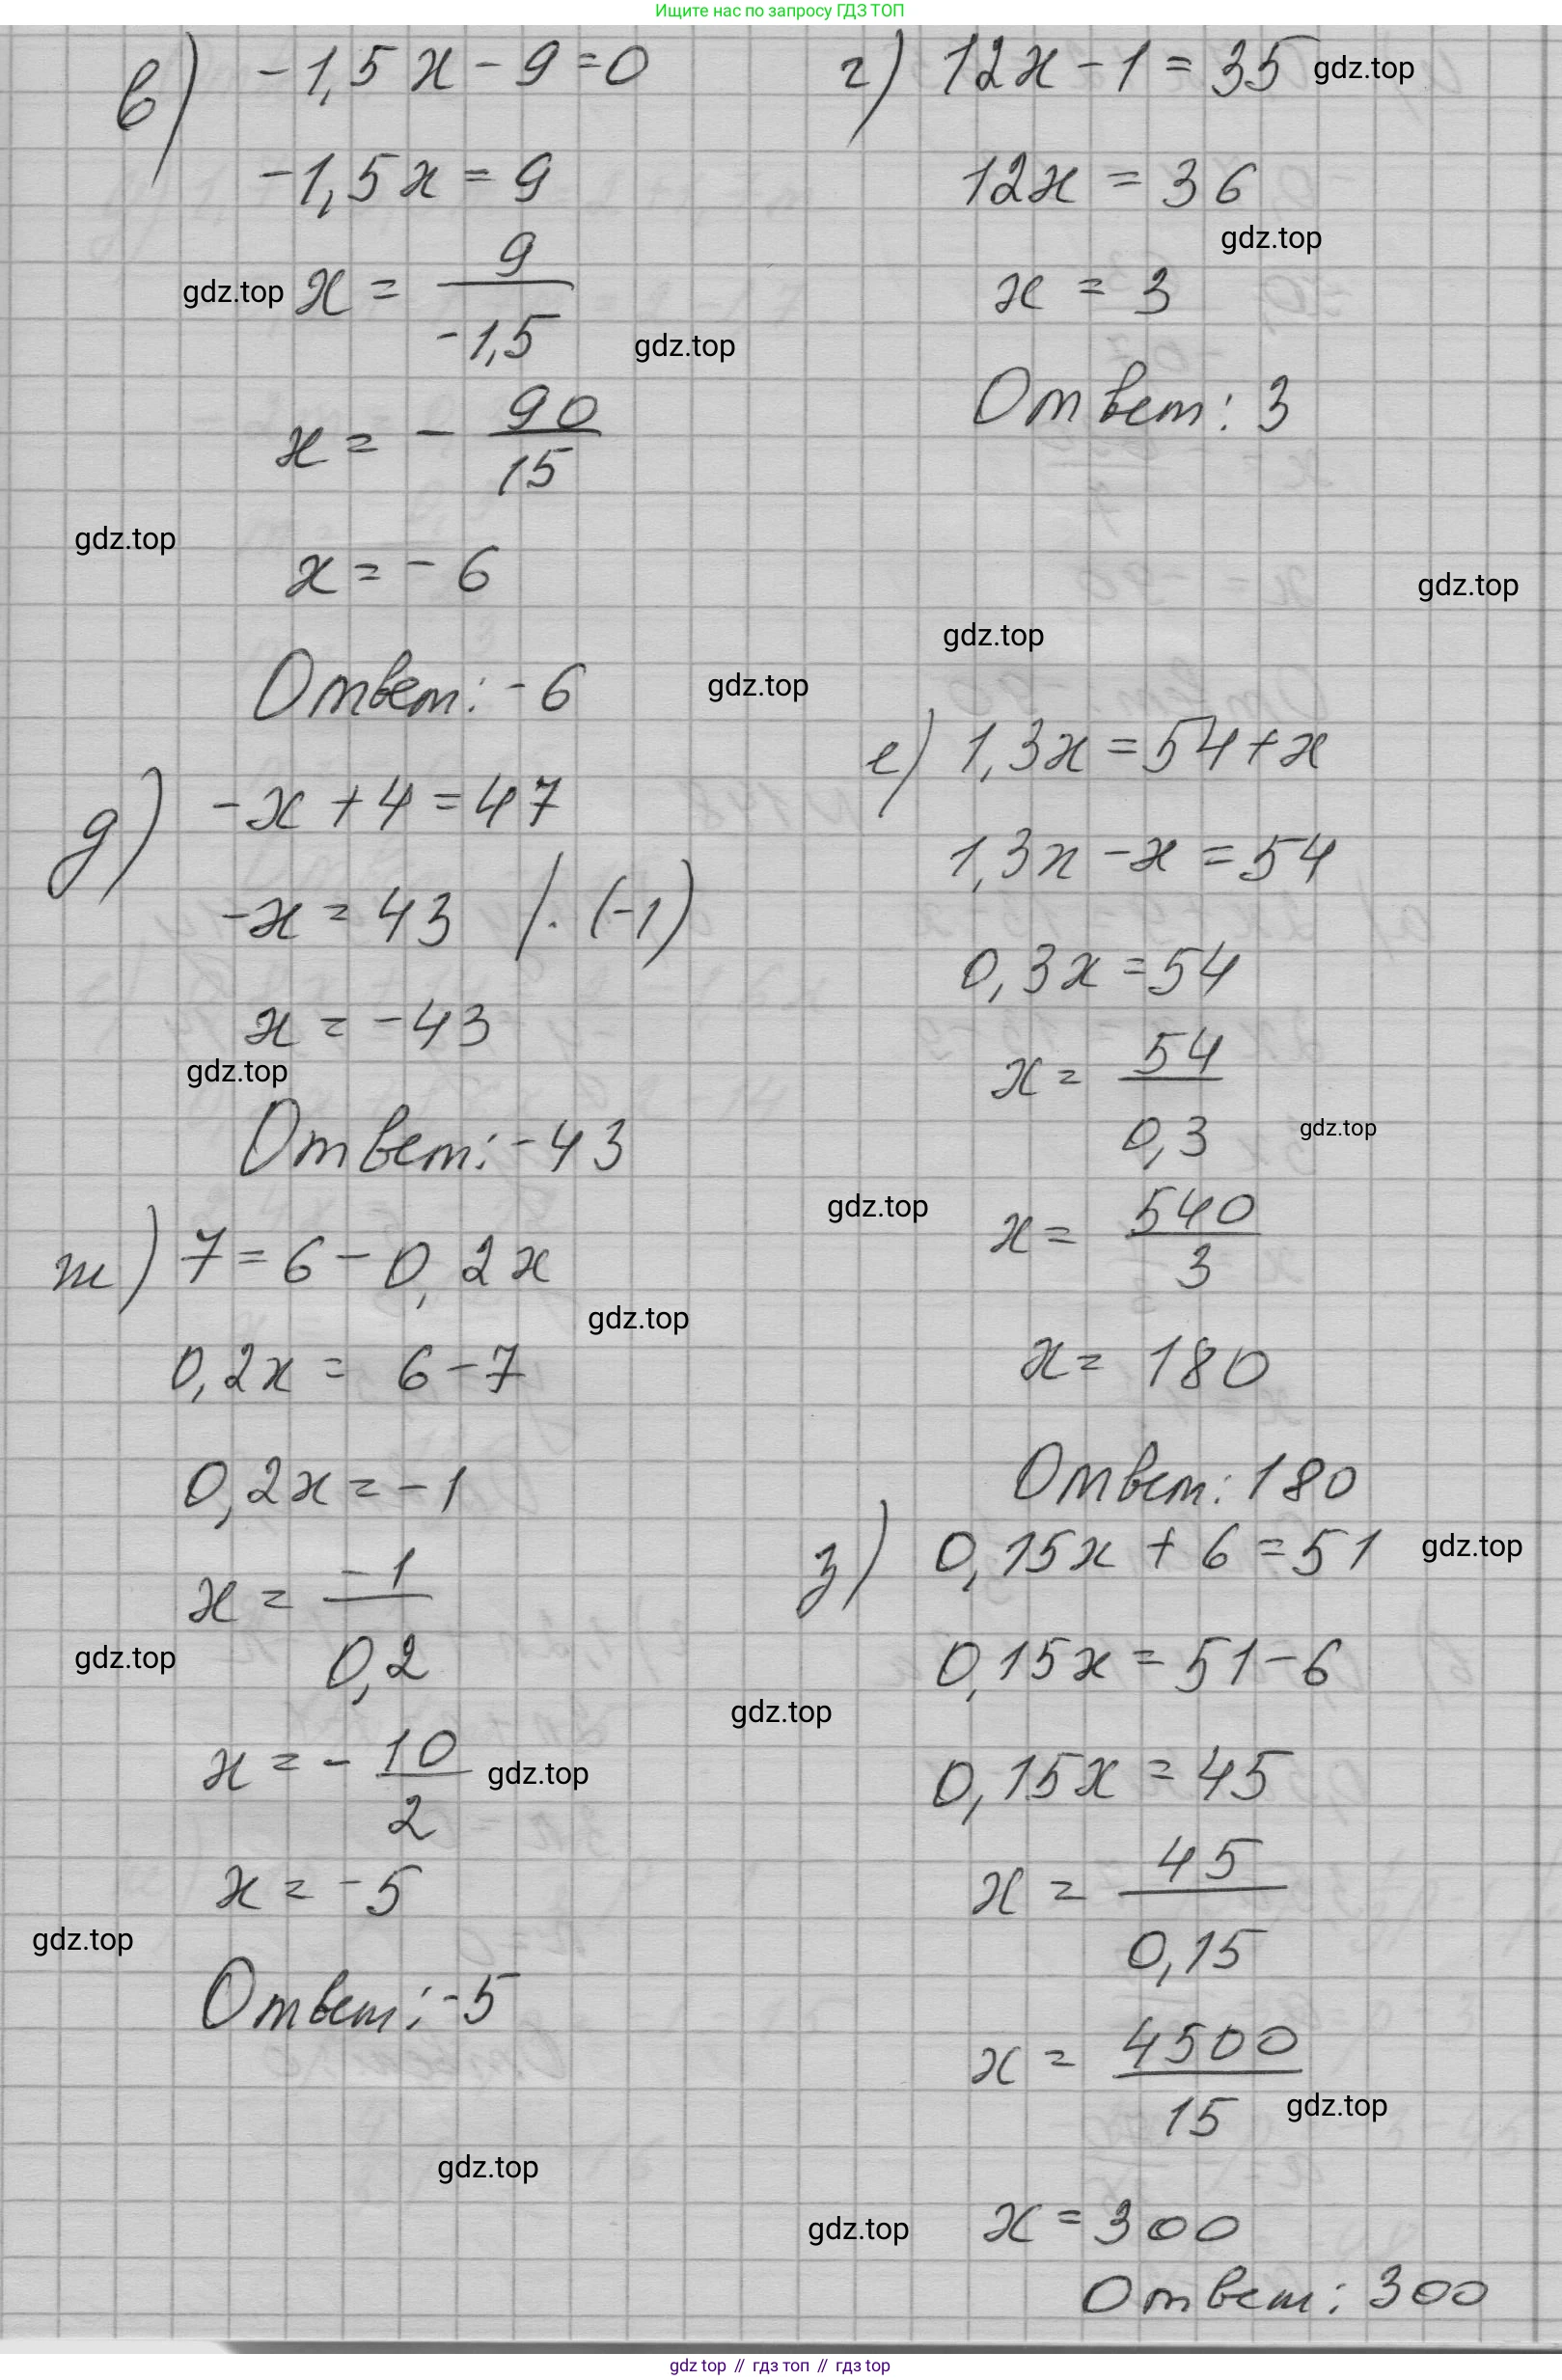 Ищите нас по запросу ГДЗ ТОП
в) -1,5x - 9 = 0
-1,5x = 9
gdz.top
x = 9/-1,5
gdz.top
x = - 90/15
gdz.top
x = -6
Ответ: -6
gdz.top
г) 12x - 1 = 35
gdz.top
12x = 36
gdz.top
x = 3
Ответ: 3
gdz.top
gdz.top
д) -x + 4 = 47
-x = 43 /·(-1)
x = -43
gdz.top
Ответ: -43
е) 1,3x = 54 + x
1,3x - x = 54
0,3x = 54
x = 54/0,3
gdz.top
gdz.top
x = 540/3
x = 180
Ответ: 180
ж) 7 = 6 - 0,2x
gdz.top
0,2x = 6 - 7
0,2x = -1
x = -1/0,2
gdz.top
gdz.top
x = - 10/2
gdz.top
x = -5
gdz.top
Ответ: -5
gdz.top
з) 0,15x + 6 = 51
gdz.top
0,15x = 51 - 6
0,15x = 45
x = 45/0,15
x = 4500/15
gdz.top
gdz.top
x = 300
Ответ: 300
gdz top // гдз топ // гдз top